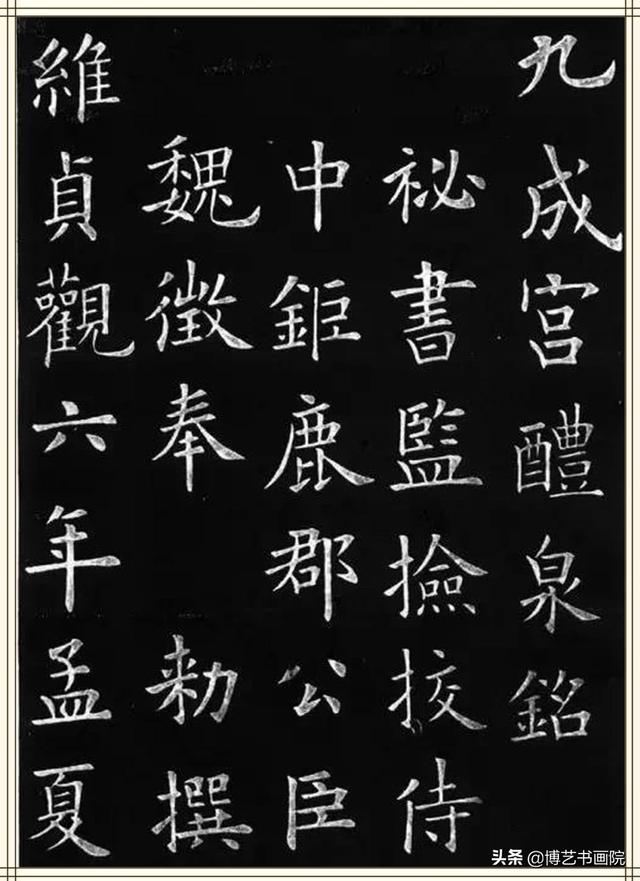 九成宫醴泉銘
祕書監撿挍侍
中鉅鹿郡公臣
魏徵奉 勑撰
維貞觀六年孟夏
头条 @博艺书画院